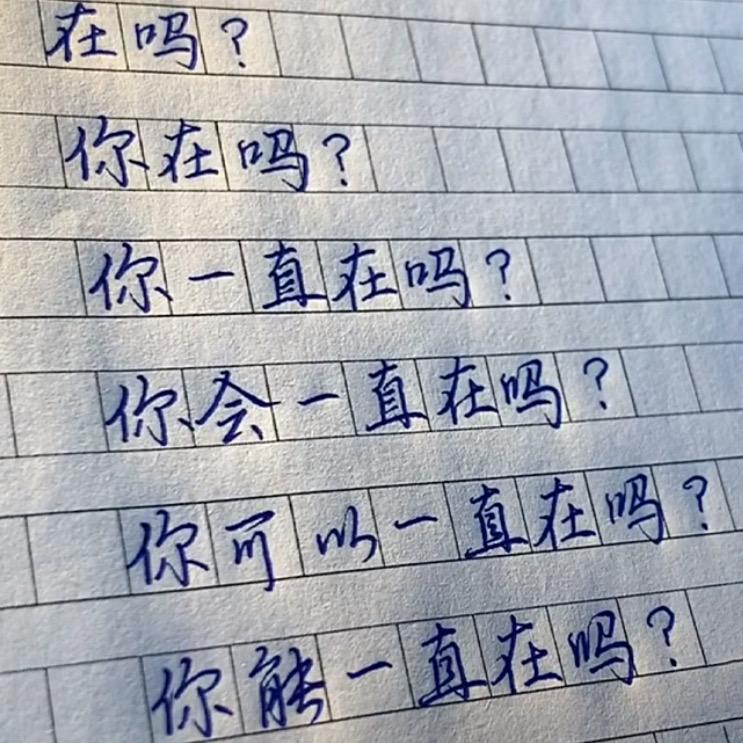 在吗？
你在吗？
你一直在吗？
你会一直在吗？
你可以一直在吗？
你能一直在吗？